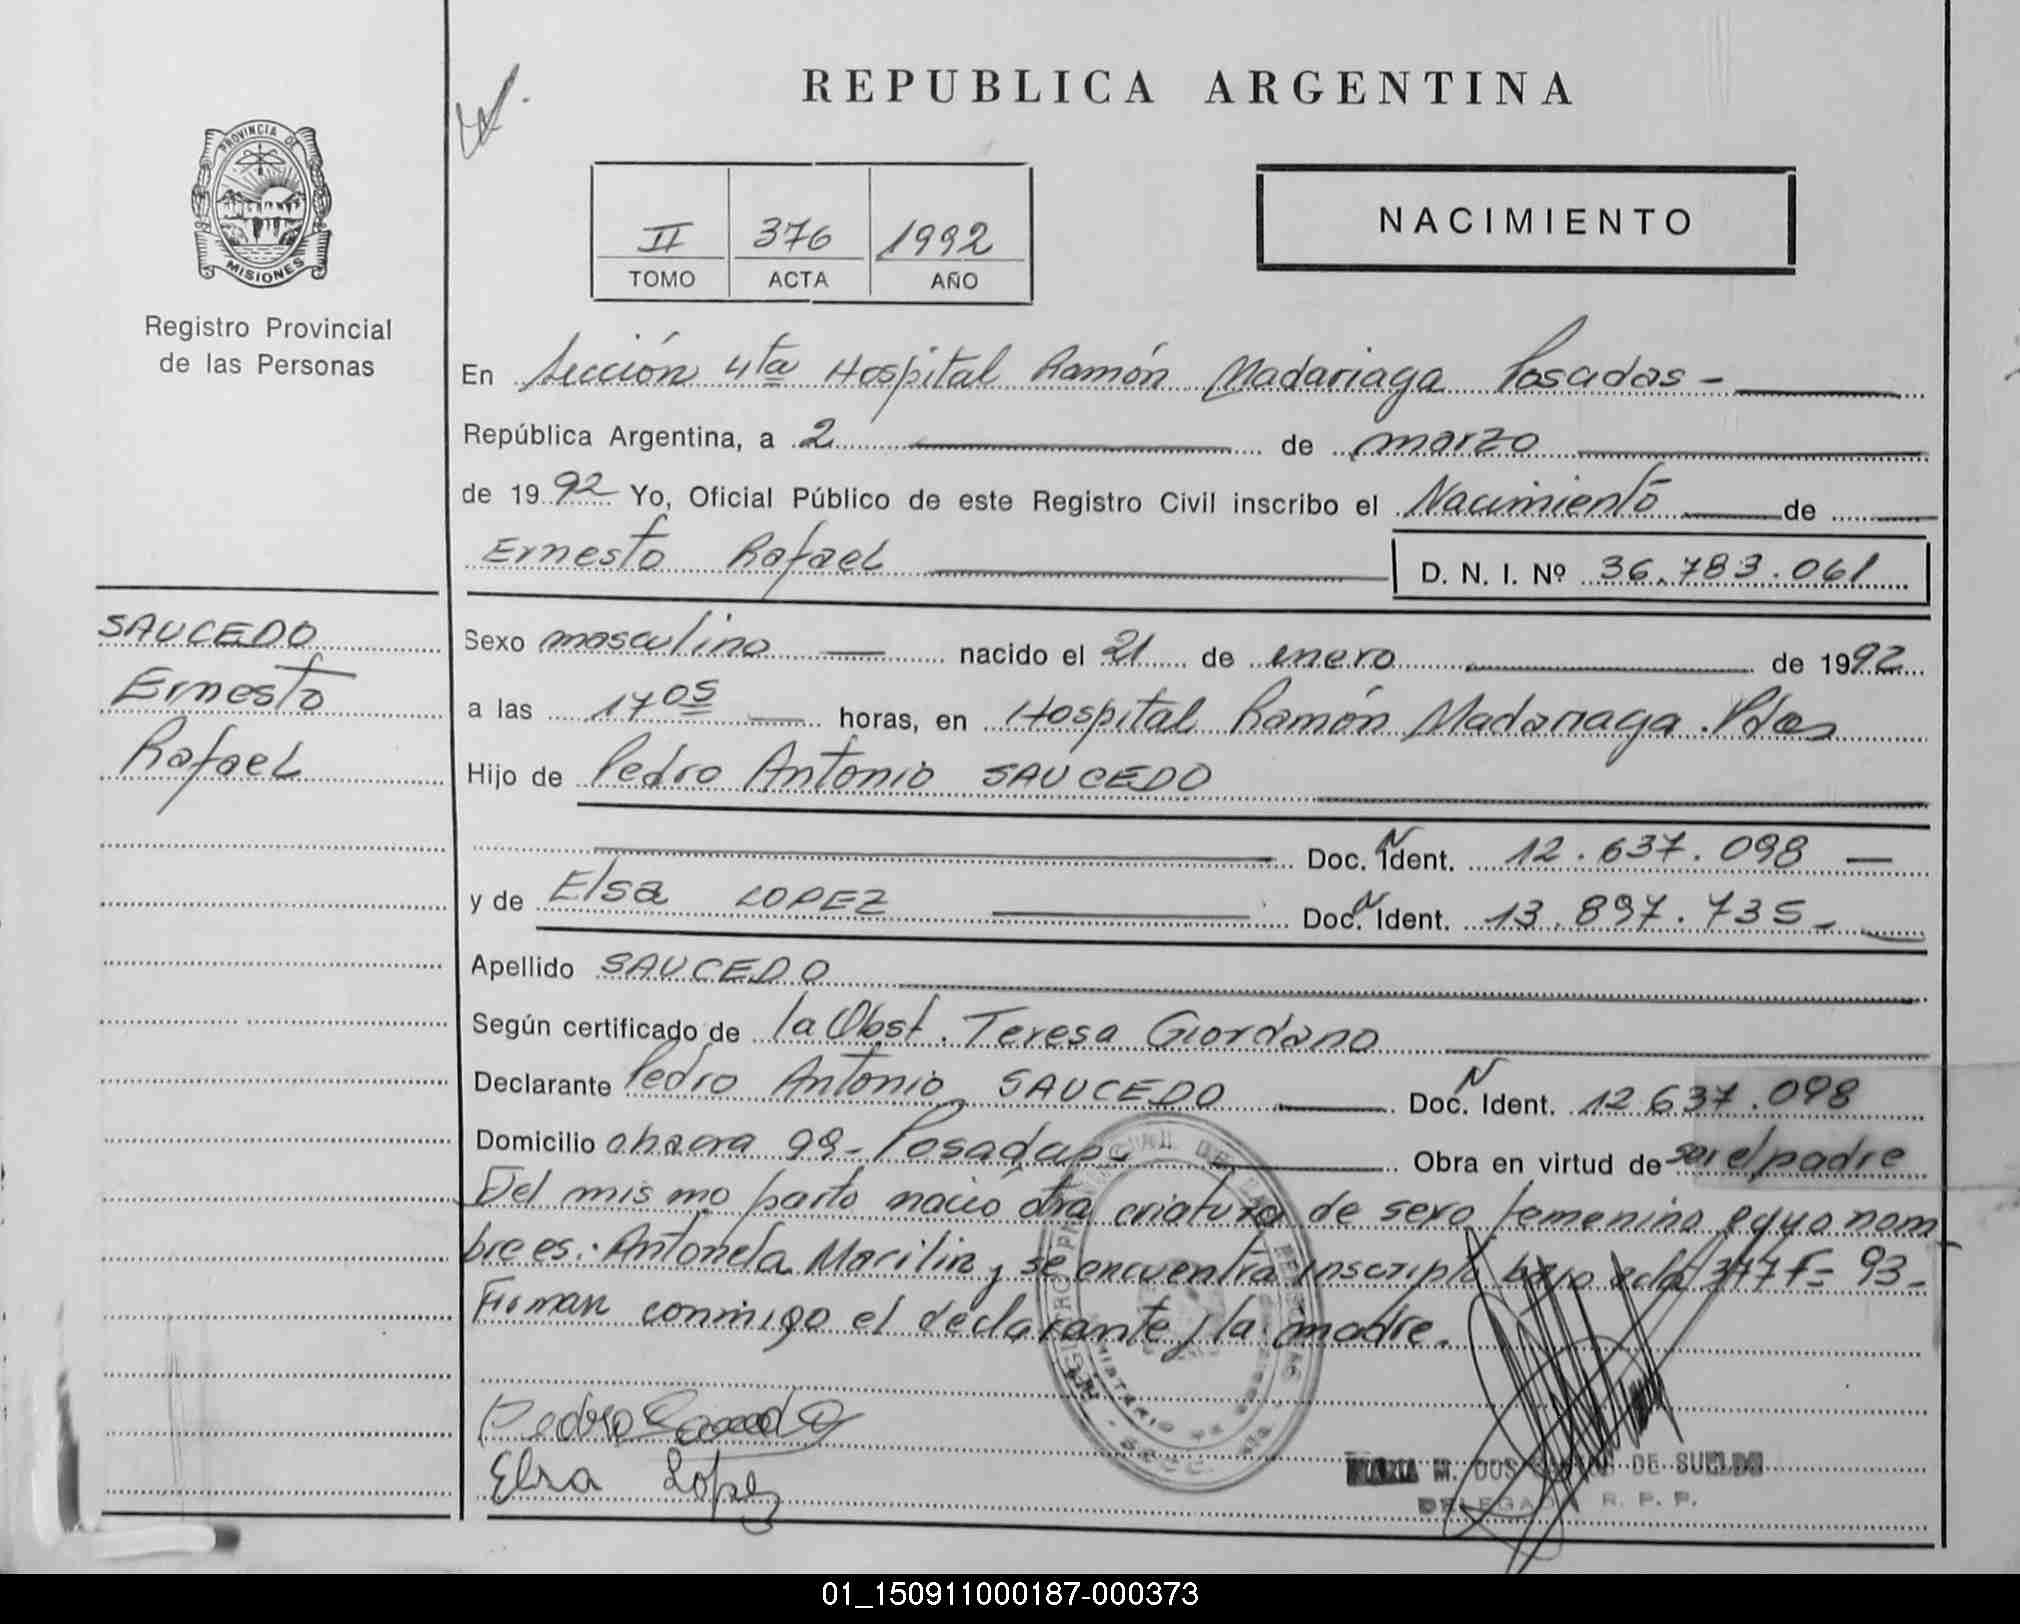 REPUBLICA ARGENTINA
PROVINCIA DE
MISIONES
Registro Provincial
de las Personas
II 376 1992
TOMO ACTA AÑO
NACIMIENTO
En Sección 4ta Hospital Ramón Madariaga Posadas -
República Argentina, a 2 de marzo
de 1992 Yo, Oficial Público de este Registro Civil inscribo el Nacimiento de
Ernesto Rafael D. N. I. Nº 36.783.061
SAUCEDO
Ernesto
Rafael
Sexo masculino nacido el 21 de enero de 1992
a las 17 05 horas, en Hospital Ramón Madariaga. Pdas
Hijo de Pedro Antonio SAUCEDO
Doc. N Ident. 12.637.098
y de Elsa LOPEZ Doc. N Ident. 13.897.735
Apellido SAUCEDO
Según certificado de la Obst. Teresa Giordano
Declarante Pedro Antonio SAUCEDO Doc. N Ident. 12.637.098
Domicilio chacra 99 - Posadas. Obra en virtud de ser el padre
Del mismo parto nació otra criatura de sexo femenino cuyo nom
bre es: Antonela Marilin y se encuentra inscripta bajo acta 377 F= 93-
Firman conmigo el declarante y la madre.
Pedro Saucedo
Elsa Lopez
MARIA M. DOS DE SUELDO
DELEGADA R. P. P.
01_150911000187-000373